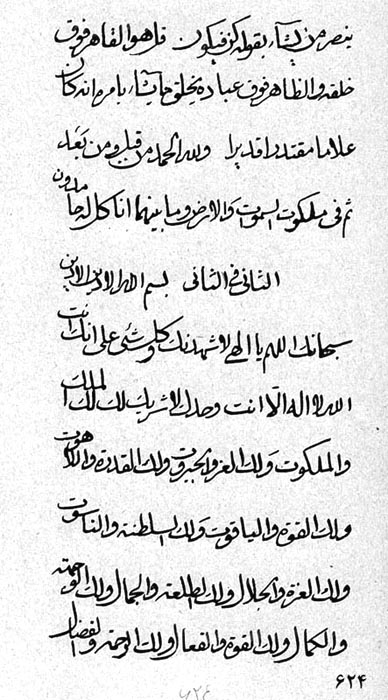 ينصر من يشآء بقوله كن فيكون قل هو القاهر فوق
خلقه والظاهر فوق عباده يخلق ما يشآء بامره انه كان
علاما مقتدرا قديرا ولله الحمد من قبل ومن بعد
ثم فى ملكوت السموات والارض وما بينهما انا كل له حامدون
الثانى فى الثانى بسم الله
سبحانك اللهم يا الهى لاشهدنك وكلشئ على انك انت
الله لا اله الا انت وحدك لا شريك لك لك الملك
والملكوت ولك العز والجبروت ولك القدرة واللاهوت
ولك القوة والياقوت ولك السلطنة والناسوت
ولك العزة والجلال ولك الطلعة والجمال ولك الوجهة
والكمال ولك القوة والفعال ولك الرحمة والفضال
٦٢٤
٦٢٤